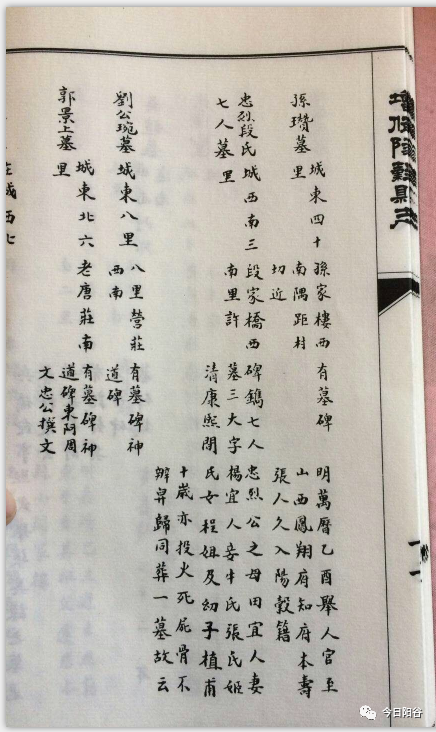 增修陽穀縣志
孫瓚墓
城東四十
里
孫家樓西
南隅距村
切近
有墓碑
明萬曆乙酉舉人官至
山西鳳翔府知府本壽
張人久入陽穀籍
忠烈段氏
七人墓
城西南三
里
段家橋西
南里許
碑鐫七人
墓三大字
清康熙間
忠烈公之母田宜人妻
楊宜人妾牛氏張氏姬
氏女程姐及幼子植甫
十歲亦投火死屍骨不
辦舁歸同葬一墓故云
劉公琬墓
城東八里
八里營莊
西南
有墓碑神
道碑
郭景上墓
城東北六
里
老唐莊南
有墓碑神
道碑東阿周
文忠公撰文
城西七
今日阳谷